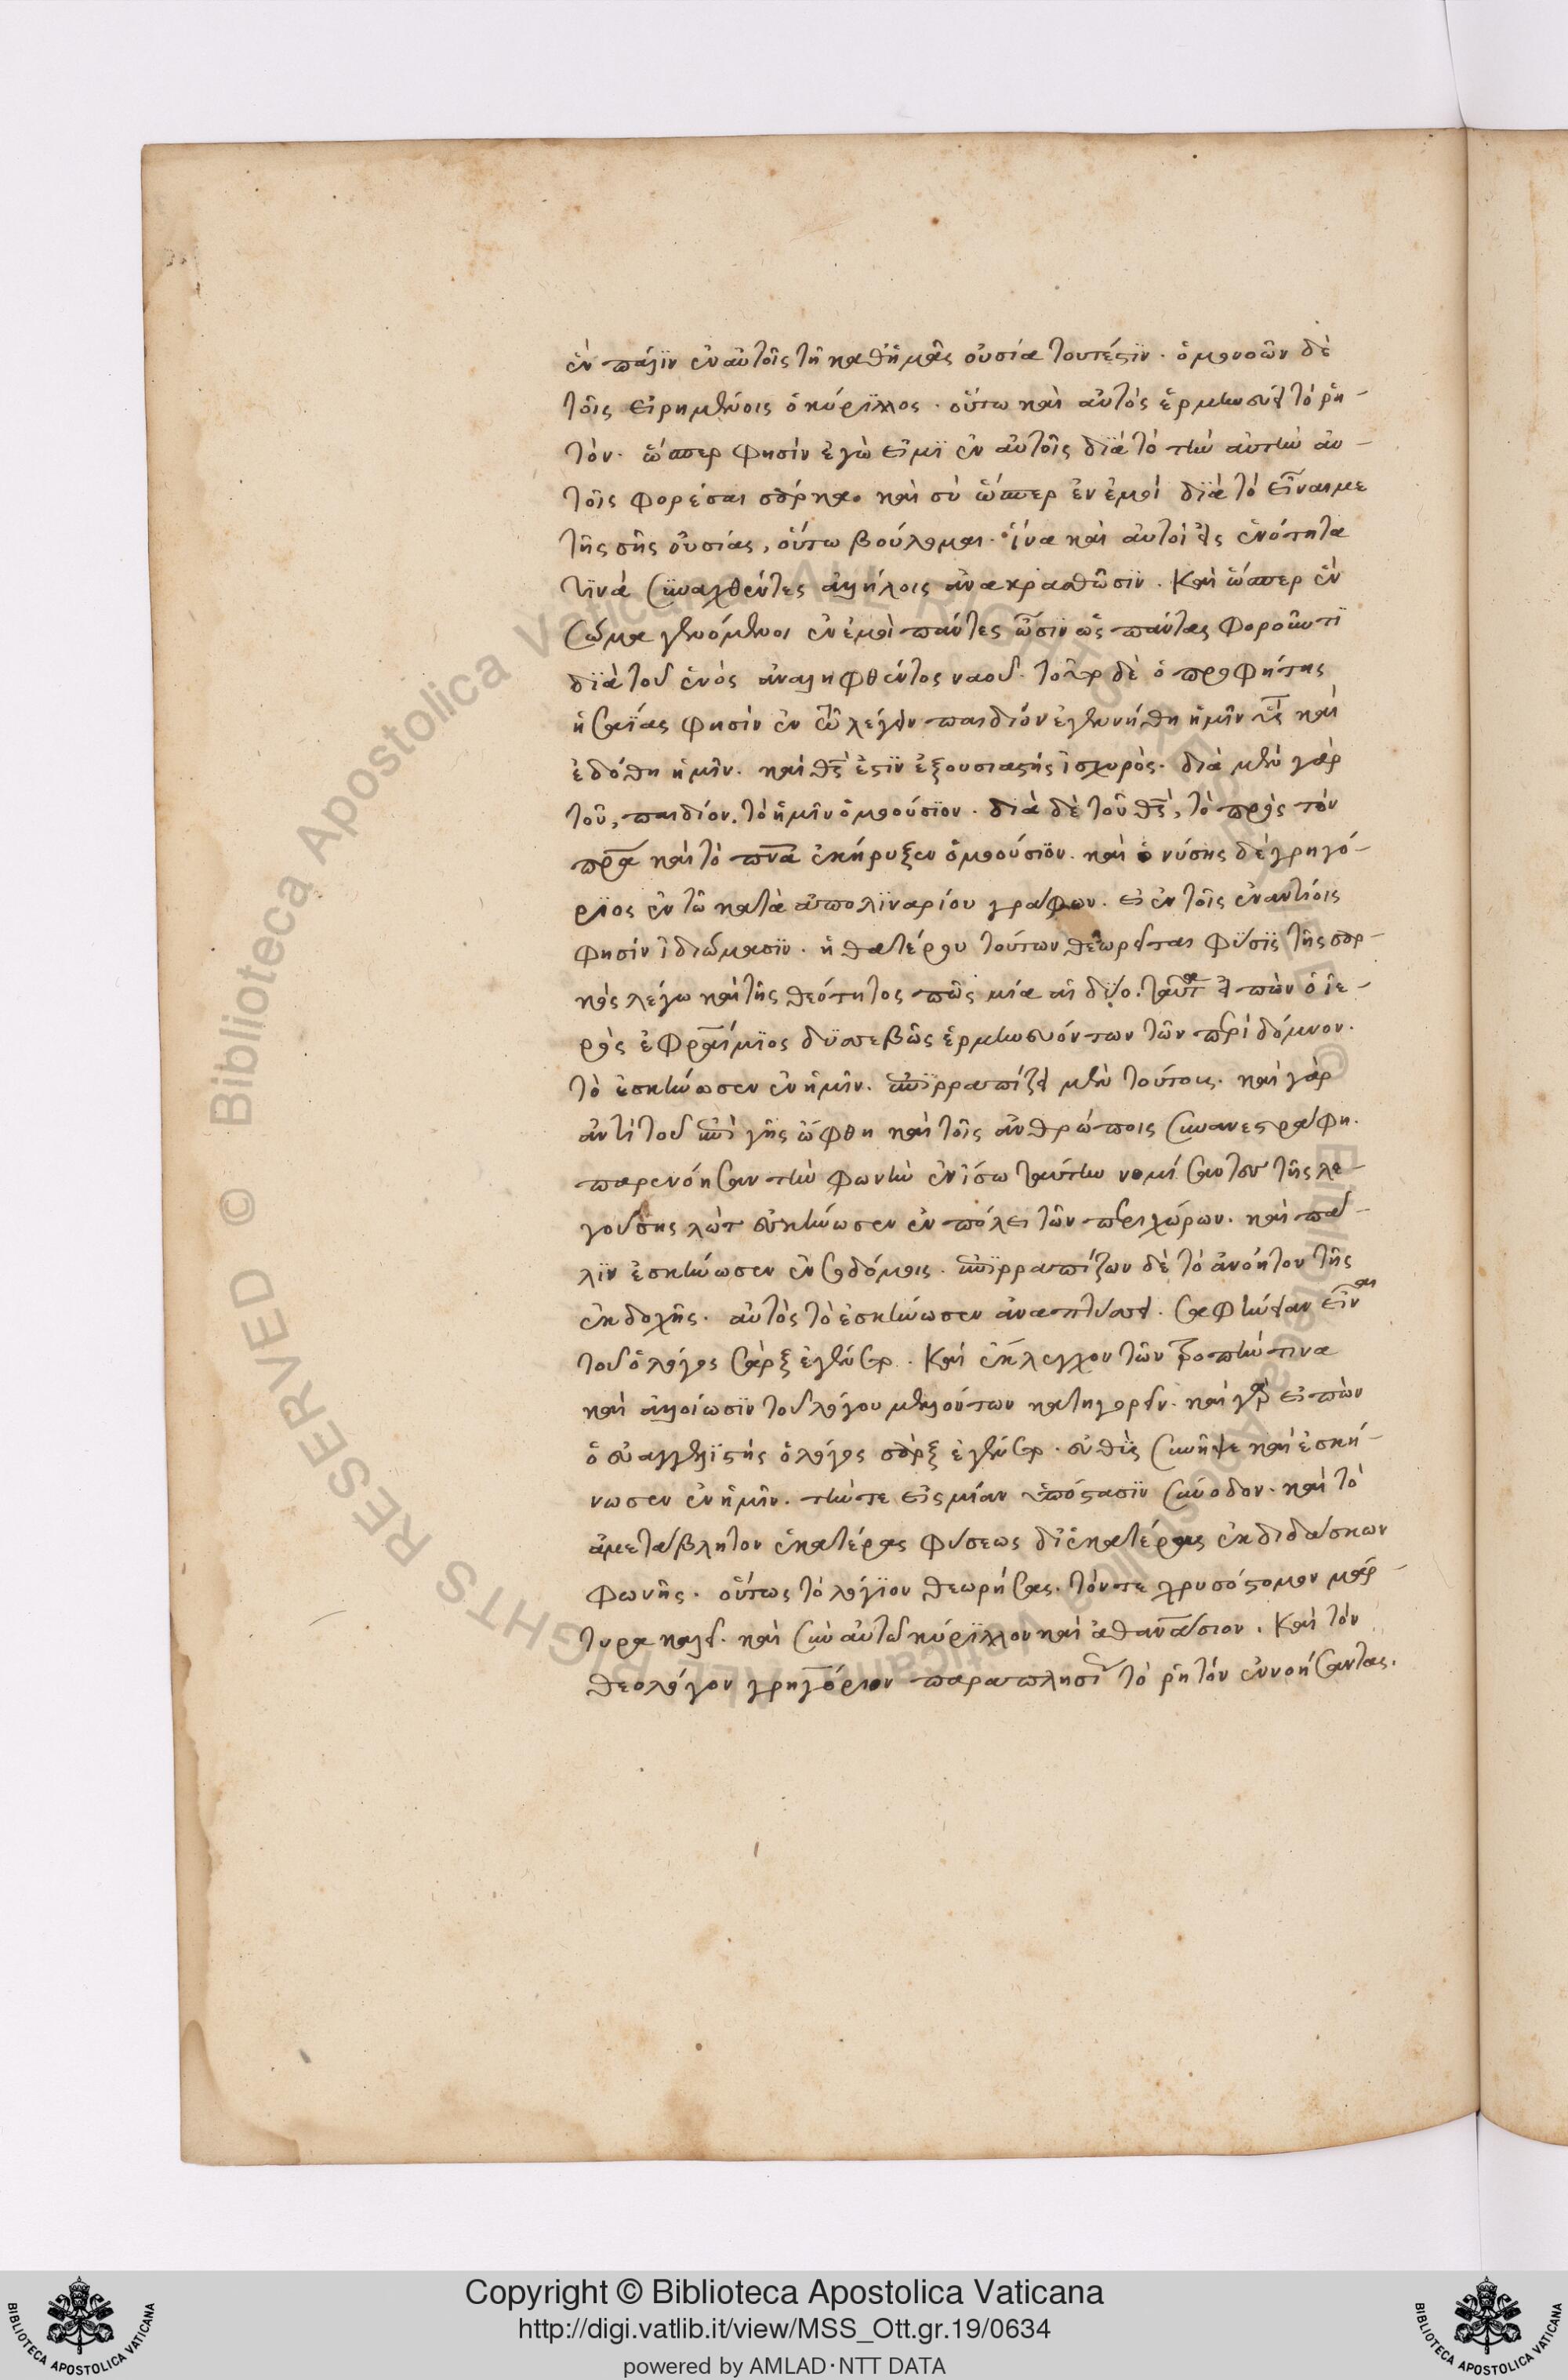 ἐν πάλϊν ἐν αὐτοῖς τῆ καθ ἡμᾶς οὐσία τουτέστϊν. ὁμονοῶν δὲ
τοῖς εἰρημένοις ὁ κύρϊλλος. οὕτω καὶ αὐτὸς ἑρμηνεύει τὸ ῥη-
τόν. ὥσπερ φησὶν ἐγὼ εἰμϊ ἐν αὐτοῖς δϊὰ τὸ τὴν αὐτὴν αὐ-
τοῖς φορέσαι σάρκα. καὶ σὺ ὥσπερ ἐν ἐμοὶ δϊὰ τὸ εἶναι με
τῆς σῆς οὐσίας, οὕτω βούλομαι. ἵνα καὶ αὐτοὶ εἰς ἑνότητα
τϊνὰ συναχθέντες ἀλλήλοις ἀνακραθῶσϊν. Καὶ ὥσπερ ἓν
σῶμα γενόμενοι ἐν ἐμοὶ πάντες ὦσϊν ὡς πάντας φοροῦντϊ
δϊὰ τοῦ ἑνὸς ἀναληφθέντος ναοῦ. δὲ ὁ προφήτης
ἡσαΐας φησὶν ἐν ὧ λέγειν παιδίον ἐγεννήθη ἡμῖν υς καὶ
ἐδόθη ἡμῖν. καὶ θς ἐστϊν ἐξουσιαστὴς ἰσχυρὸς. διὰ μὲν γὰρ
τοῦ, παιδίον. τὸ ἡμῖν ὁμοούσϊον. διὰ δὲ τοῦ θς, τὸ πρὸς τὸν
πρα καὶ τὸ πνα ἐκήρυξεν ὁμοούσϊον. καὶ ὁ νύσης δὲ γρηγό-
ρϊος ἐν τῶ κατὰ ἀπολϊναρίου γράφων. εἰ ἐν τοῖς ἐναντίοις
φησὶν ἰδιώμασϊν. ἡ θατέρου τούτων θεωρεῖται φύσϊς τῆς σαρ-
κὸς λέγω καὶ τῆς θεότητος πῶς μία αἱ δύο. ταῦτα εἰπὼν ὁ ἱε-
ρὸς ἐφραίμϊος δϋσσεβῶς ἑρμηνευόντων τῶν περὶ δόμνον.
τὸ ἐσκήνωσεν ἐν ἡμῖν. ἐπϊρραπίζει μὲν τούτοις. καὶ γὰρ
ἀντὶ τοῦ ἐπὶ γῆς ὤφθη καὶ τοῖς ἀνθρώποις συνανεστράφη.
παρενόησαν τὴν φωνὴν ἐν ἴσω ταύτην νομίσαντες τῆς λε-
γούσης λὼτ ἐσκήνωσεν ἐν πόλει τῶν περιχώρων. καὶ πά-
λϊν ἐσκήνωσεν ἐν σοδόμοις. ἐπϊρραπίζων δὲ τὸ ἀνόητον τῆς
ἐκδοχῆς. αὐτὸς τὸ ἐσκήνωσεν ἀναπτύσσει. σαφήνειαν εἶναι
τοῦ ὁ λόγος σὰρξ ἐγένετο. Καὶ ἔλεγχον τῶν τροπήν τινα
καὶ ἀλλοίωσϊν τοῦ λόγου μελλόντων κατηγορεῖν. καὶ γὰρ εἰπὼν
ὁ εὐαγγελϊστὴς ὁ λόγος σὰρξ ἐγένετο. εὐθϋς συνῆψε καὶ ἐσκή-
νωσεν ἐν ἡμῖν. τήν τε εἰς μίαν ὑπόστασϊν σύνοδον. καὶ τὸ
ἀμετάβλητον ἑκατέρας φύσεως δι ἑκατέρας ἐκδιδάσκων
φωνῆς. οὕτως τὸ λόγϊον θεωρήσας. τόν τε χρυσόστομον μάρ-
τυρα καλεῖ. καὶ σὺν αὐτῶ κύρϊλλον καὶ ἀθανάσιον. Καὶ τὸν
θεολόγον γρηγόριον παραπλησί τὸ ῥητὸν ἐννοήσαντας.
Copyright © Biblioteca Apostolica Vaticana
http://digi.vatlib.it/view/MSS_Ott.gr.19/0634
powered by AMLAD·NTT DATA
BIBLIOTECA APOSTOLICA VATICANA
BIBLIOTECA APOSTOLICA VATICANA
© Biblioteca Apostolica Vaticana ALL RIGHTS RESERVED
© Biblioteca Apostolica Vaticana ALL RIGHTS RESERVED